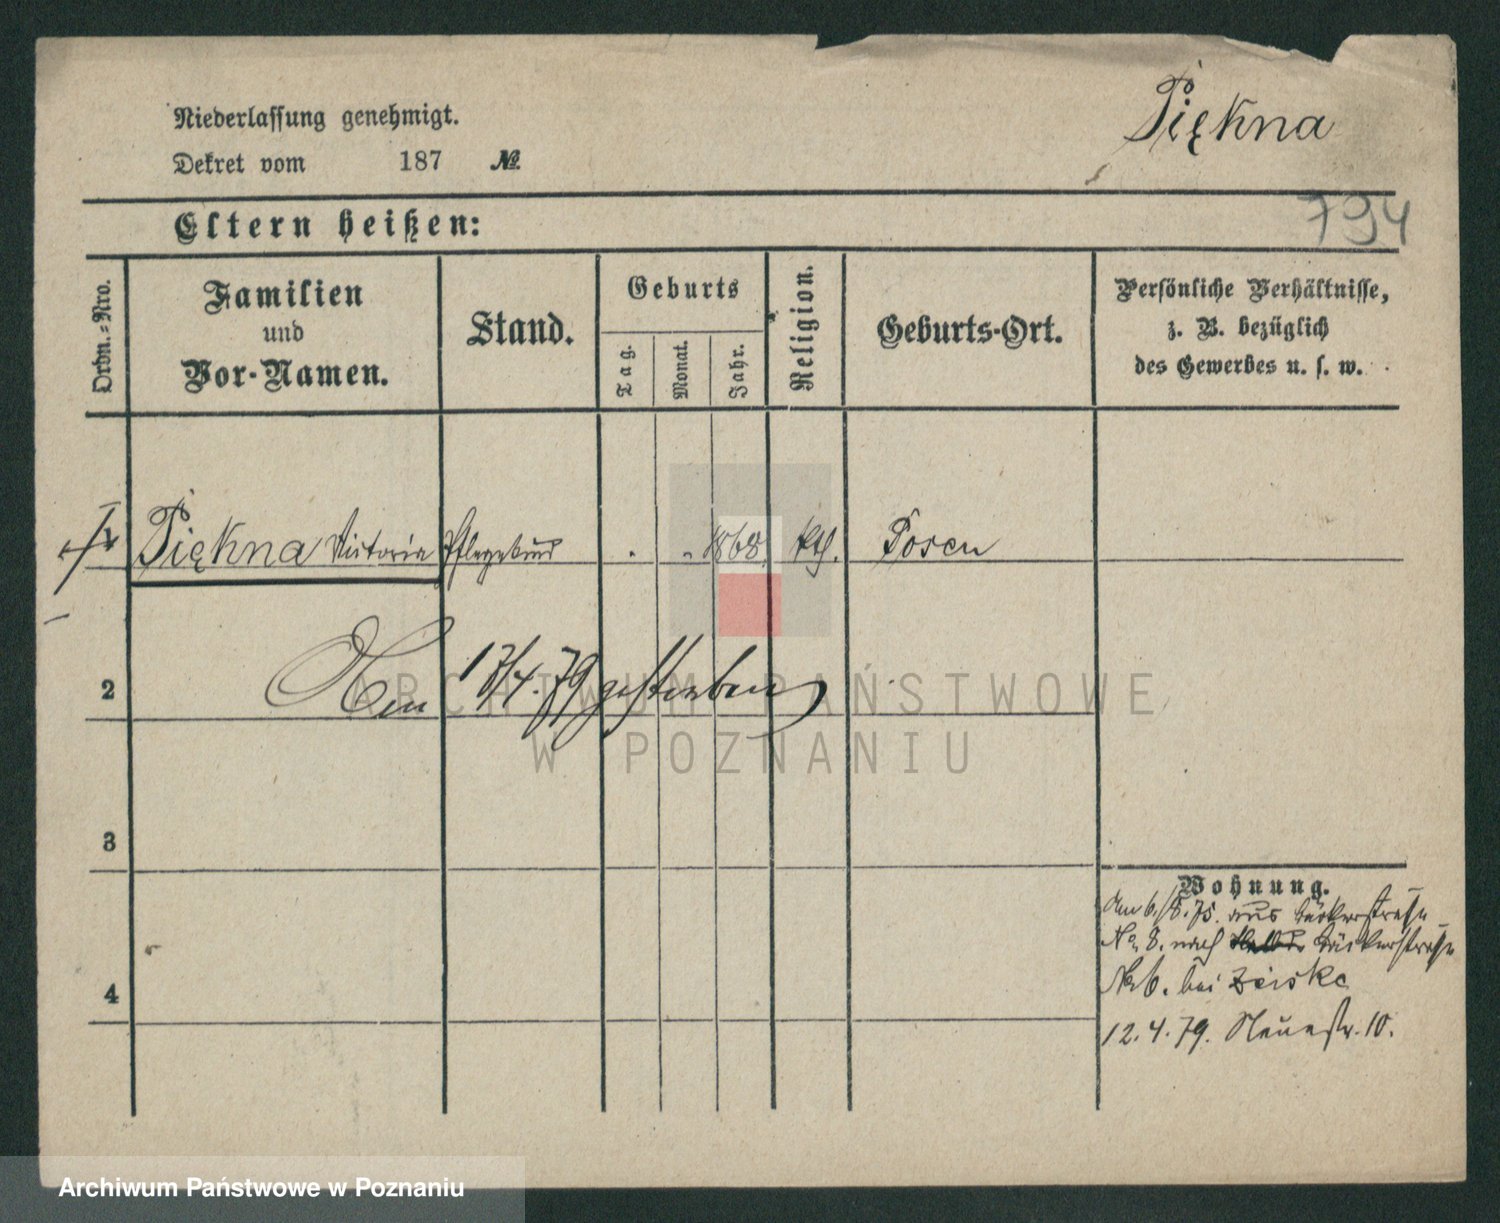 Piękna
Niederlassung genehmigt.
Dekret vom 187 №
794
Eltern heißen:
Ordn.-Nro.
Familien
und
Vor-Namen.
Stand.
Geburts
Tag.
Monat.
Jahr.
Religion.
Geburts-Ort.
Persönliche Verhältnisse,
z. B. bezüglich
des Gewerbes u. s. w.
1 Piękna Victoria Pflegekind 1868. kth. Posen
2 Den 17/4. 79 gestorben
3
Wohnung.
den 6./8.75. aus Bäckerstraße
No 8. nach Bäckerstraße
No 6. bei Zeiske
4
12.4.79. Neuestr. 10.
ARCHIWUM PAŃSTWOWE
W POZNANIU
Archiwum Państwowe w Poznaniu